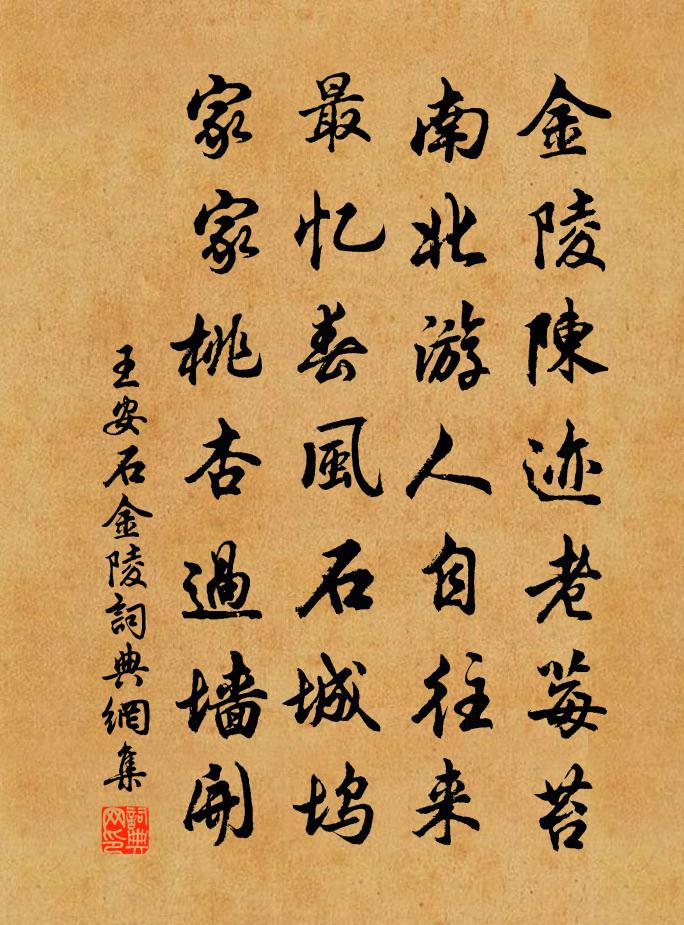 金陵陳迹老莓苔
南北游人自往来
最忆春風石城坞
家家桃杏過墙開
王安石金陵詞典網集
詞典网印